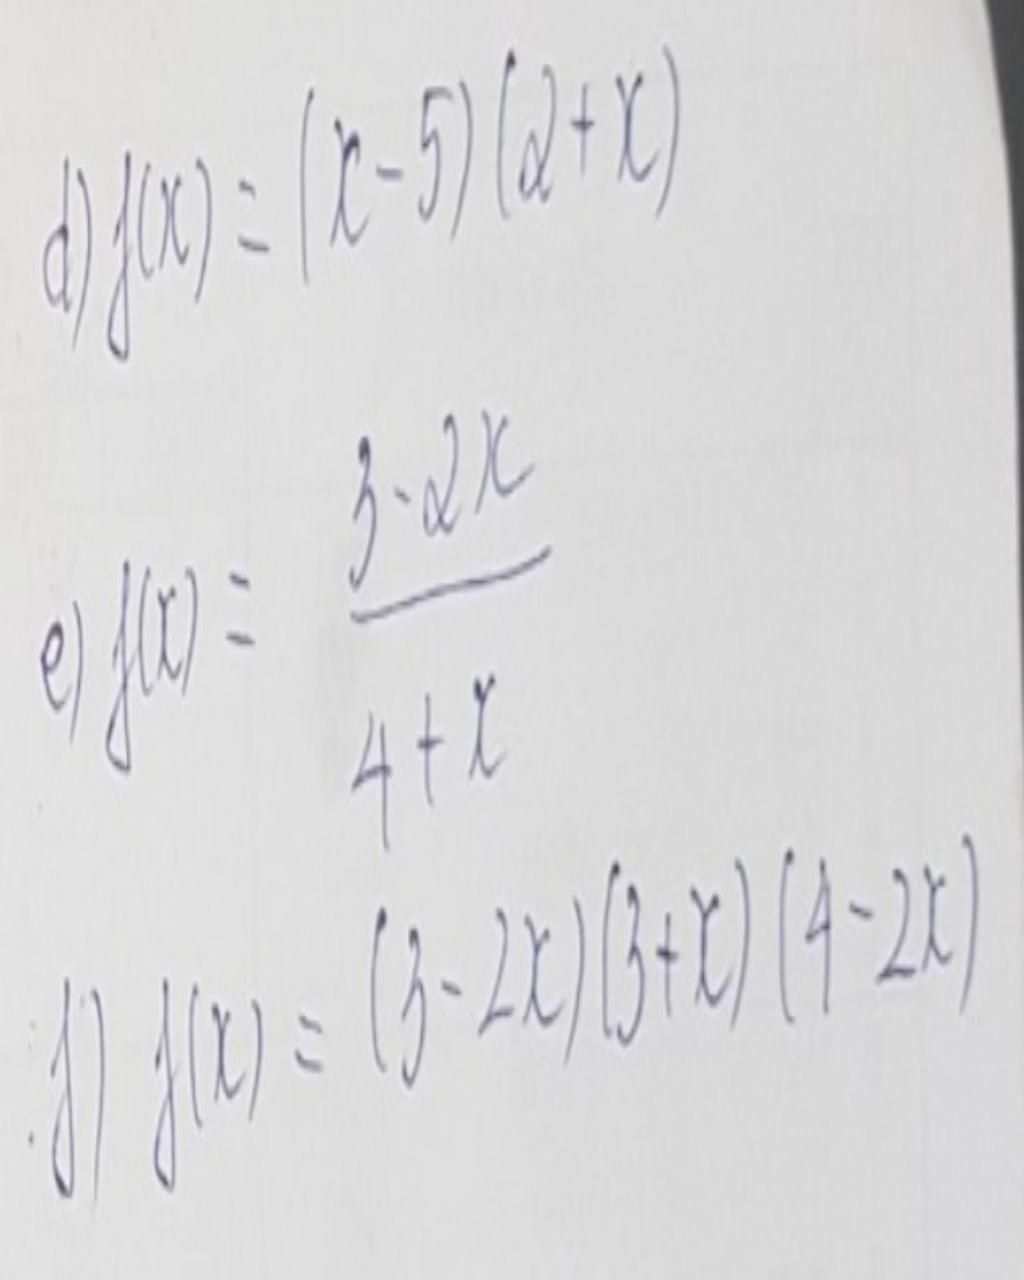 d) f(x) = (x-5)(2+x)
e) f(x) = 3-2x
4+x
f) f(x) = (3-2x)(3+x)(4-2x)